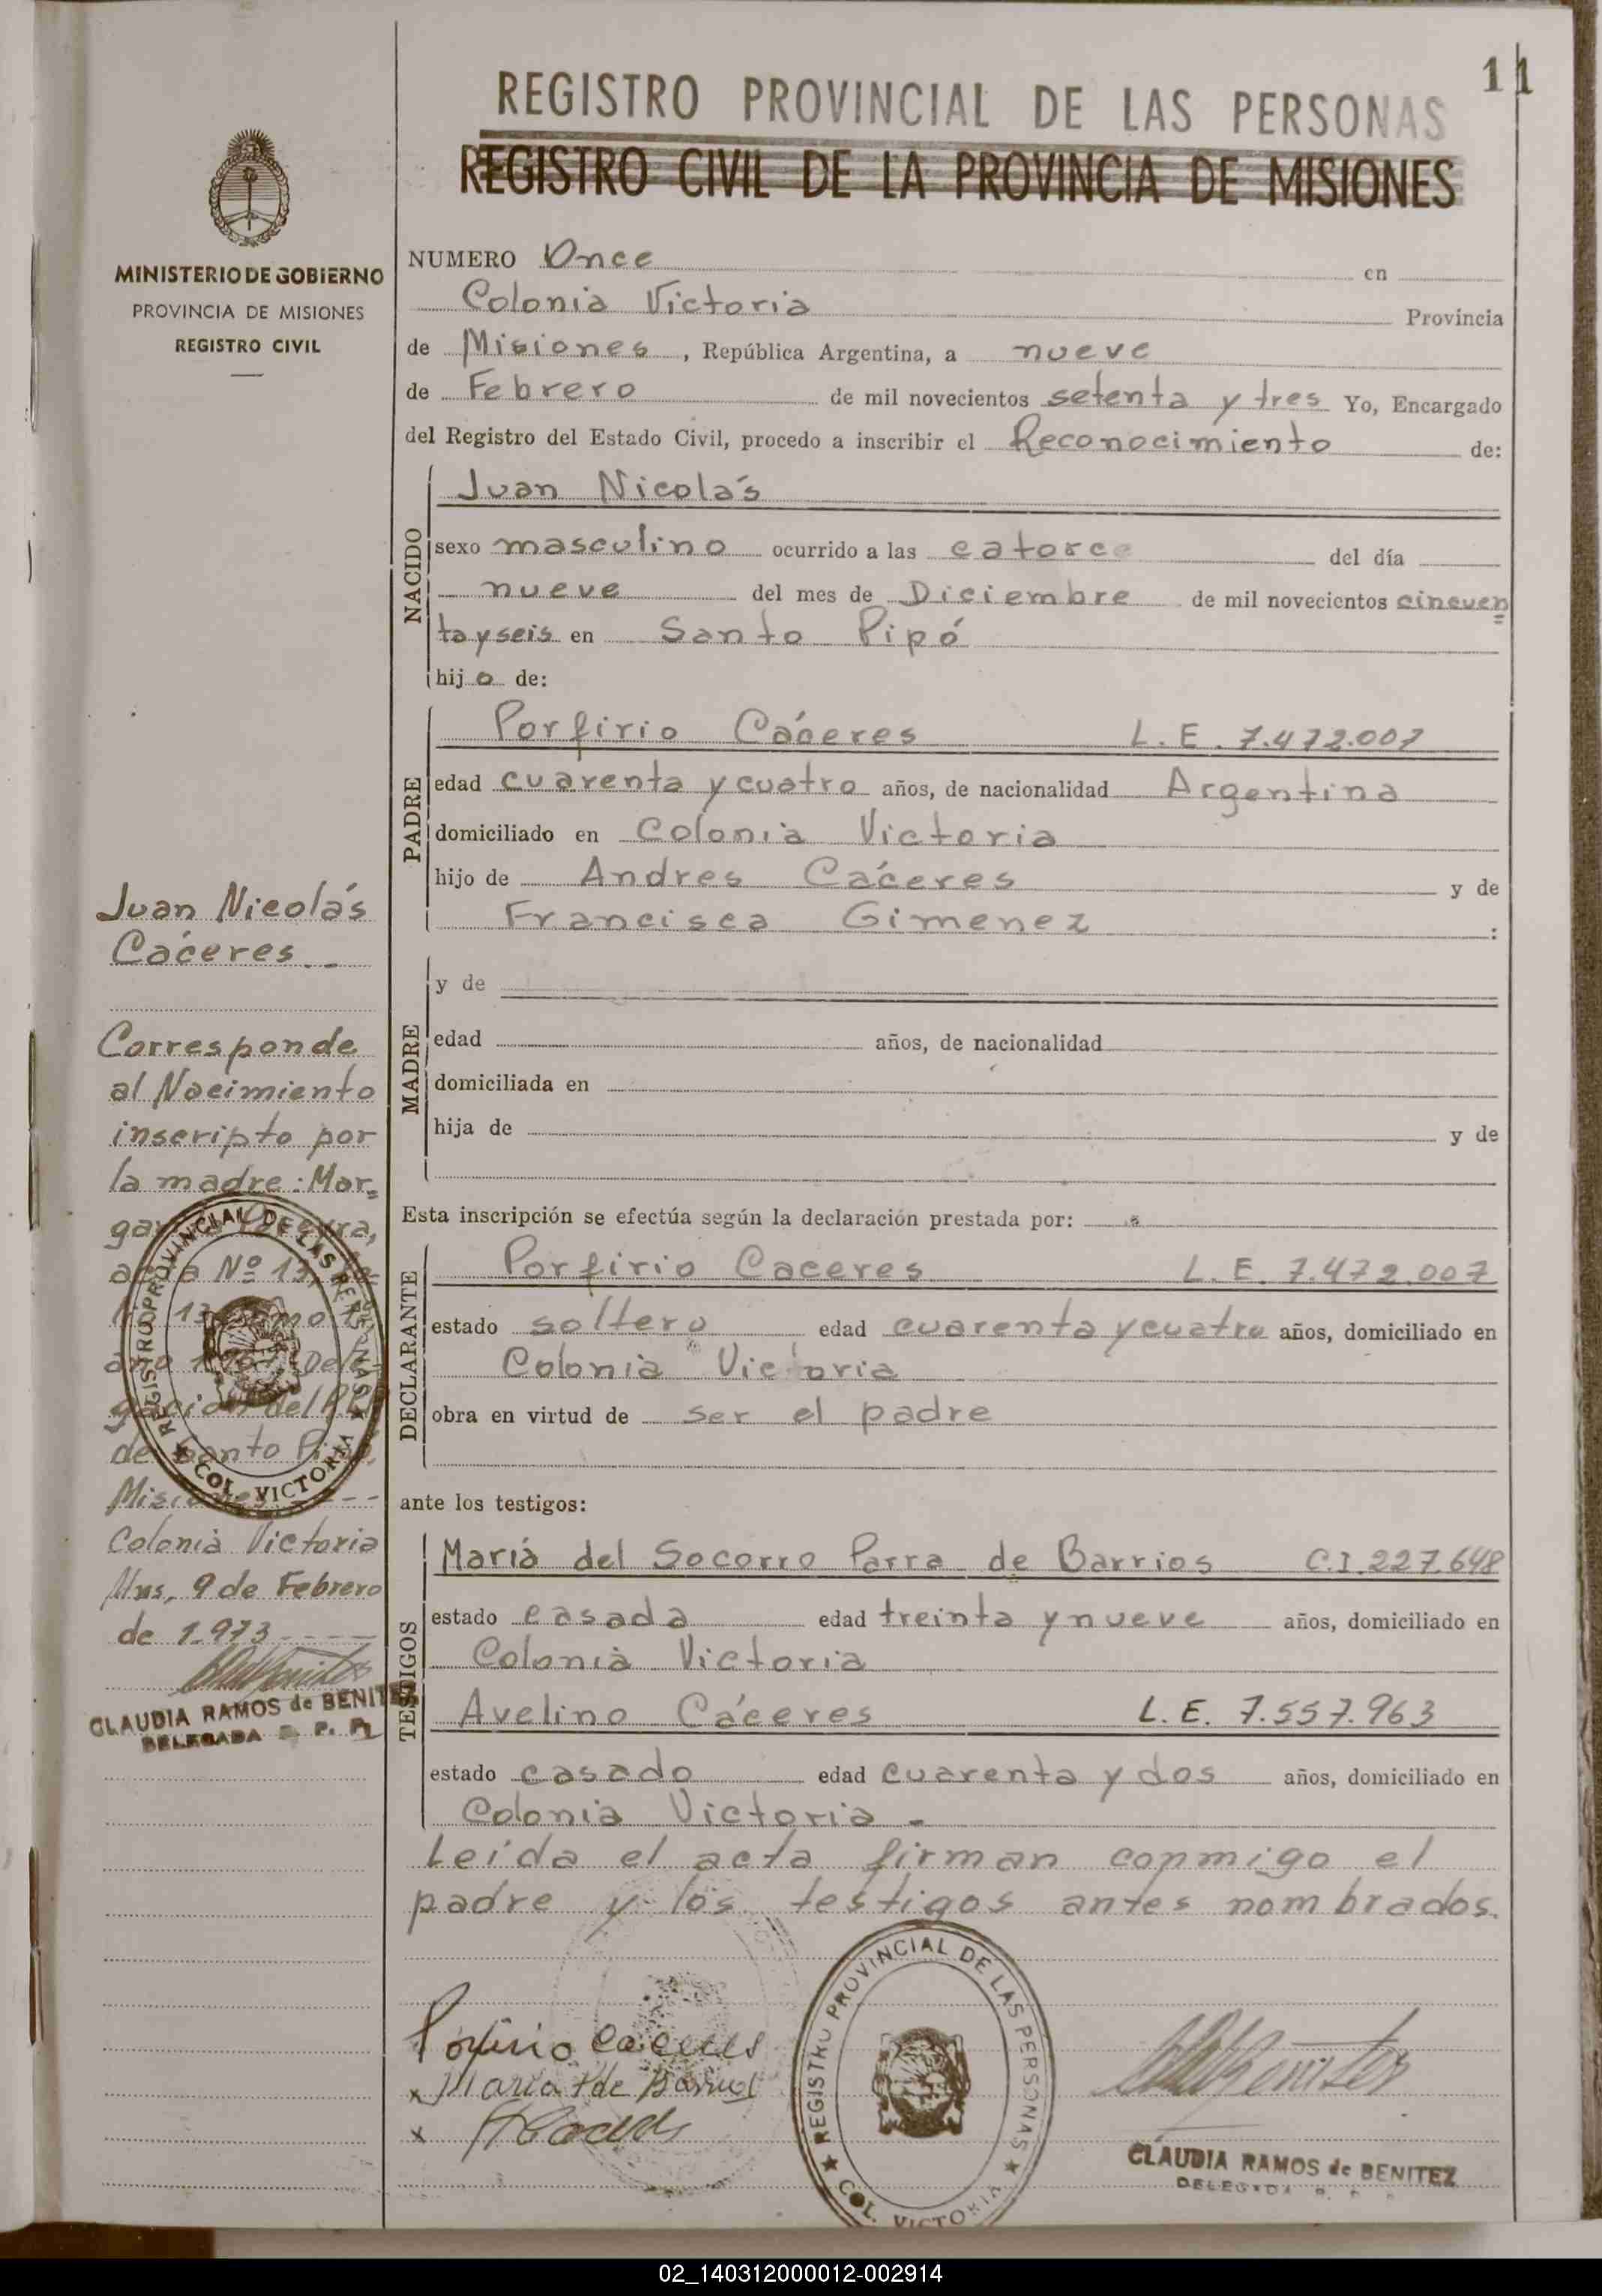 11
REGISTRO PROVINCIAL DE LAS PERSONAS
REGISTRO CIVIL DE LA PROVINCIA DE MISIONES
MINISTERIO DE GOBIERNO
PROVINCIA DE MISIONES
REGISTRO CIVIL
NUMERO Once en
Colonia Victoria Provincia
de Misiones, República Argentina, a nueve
de Febrero de mil novecientos setenta y tres Yo, Encargado
del Registro del Estado Civil, procedo a inscribir el Reconocimiento de:
NACIDO
Juan Nicolás
sexo masculino ocurrido a las catorce del día
nueve del mes de Diciembre de mil novecientos cincuen=
ta y seis en Santo Pipó
hijo de:
PADRE
Porfirio Cáceres L. E. 7.472.007
edad cuarenta y cuatro años, de nacionalidad Argentina
domiciliado en Colonia Victoria
hijo de Andres Cáceres y de
Francisca Gimenez :
MADRE
y de
edad años, de nacionalidad
domiciliada en
hija de y de
Esta inscripción se efectúa según la declaración prestada por:
DECLARANTE
Porfirio Caceres L. E. 7.472.007
estado soltero edad cuarenta y cuatro años, domiciliado en
Colonia Victoria
obra en virtud de ser el padre
ante los testigos:
TESTIGOS
Mariá del Socorro Parra de Barrios C.I. 227.648
estado casada edad treinta y nueve años, domiciliado en
Colonia Victoria
Avelino Cáceres L. E. 7.557.963
estado casado edad cuarenta y dos años, domiciliado en
Colonia Victoria -
Leida el acta firman conmigo el
padre y los testigos antes nombrados.
Juan Nicolás
Cáceres --
Corresponde
al Nacimiento
inscripto por
la madre: Mar=
Nº 13
de Santo Pipó,
Misiones ----
Colonia Victoria
Mns, 9 de Febrero
de 1.973 ----
CLAUDIA RAMOS de BENITEZ
DELEGADA R. P. P.
REGISTRO PROVINCIAL DE LAS PERSONAS
COL. VICTORIA
Porfirio Caceres
x Maria P de Barrios
x
REGISTRO PROVINCIAL DE LAS PERSONAS
COL. VICTORIA
CLAUDIA RAMOS de BENITEZ
DELEGADA R. P. P.
02_140312000012-002914